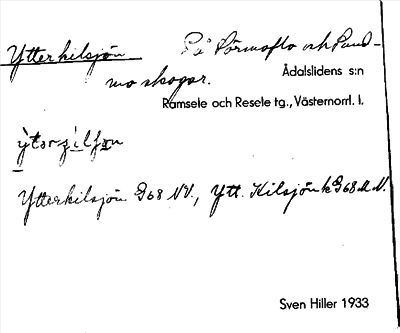 Ytterkilsjön På Pärmofto och Sund-
mo skogar.
Ådalslidens s:n
Ramsele och Resele tg., Västernorrl. l.
Ytterkilsjön G68 NV., Ytt. Kilsjön k G68 M N.
Sven Hiller 1933